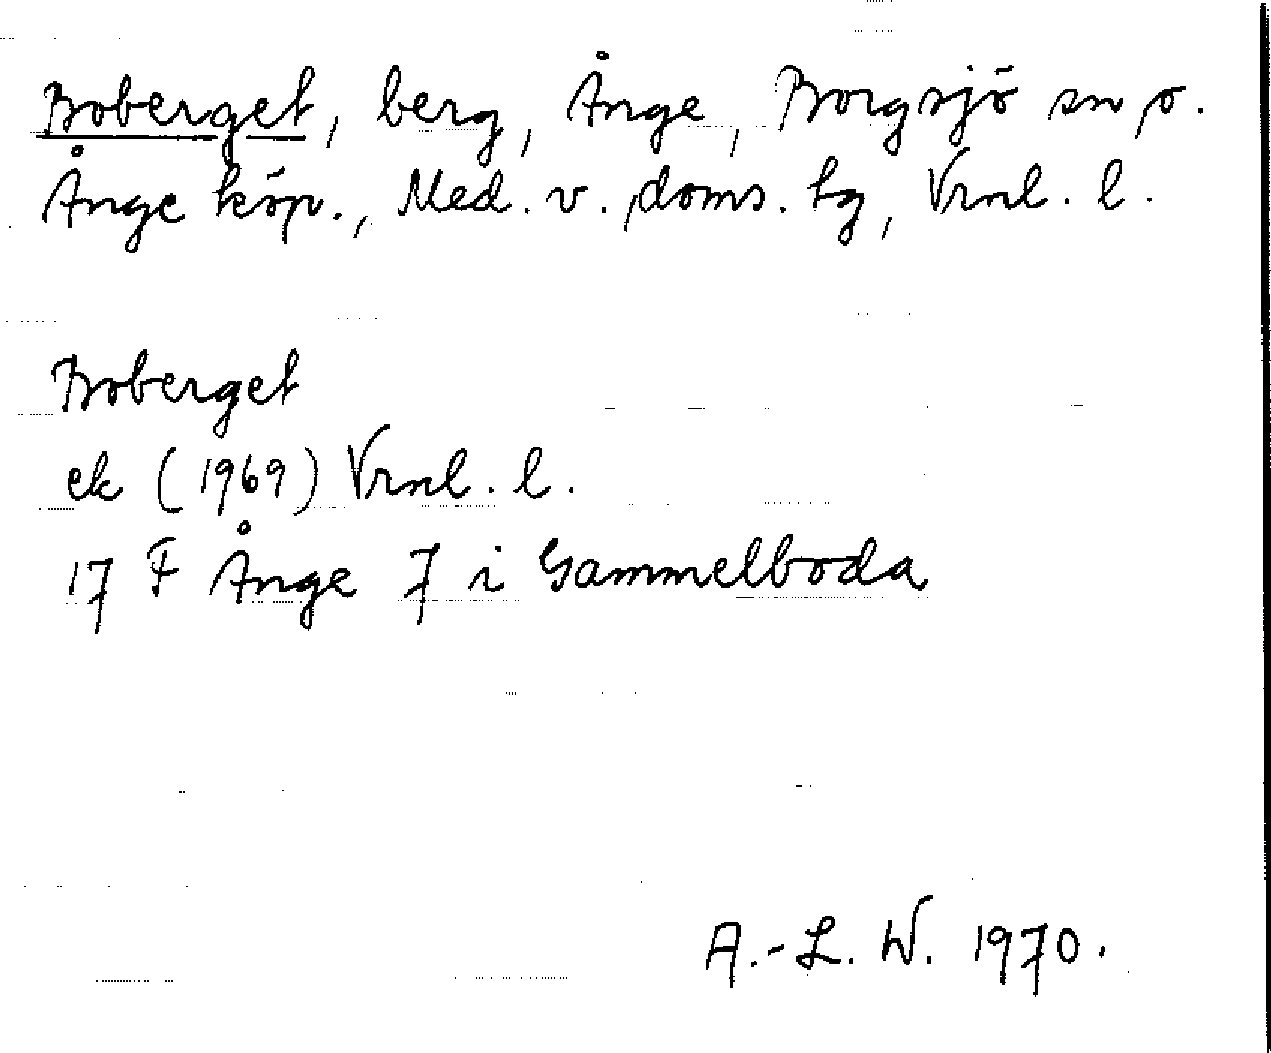 Boberget, berg, Ånge, Borgsjö sn o.
Ånge köp., Med. v. doms. tg, Vrnl. l.
Boberget
ek (1969) Vrnl. l.
17 F Ånge 7 i Gammelboda
A.-L. W. 1970.